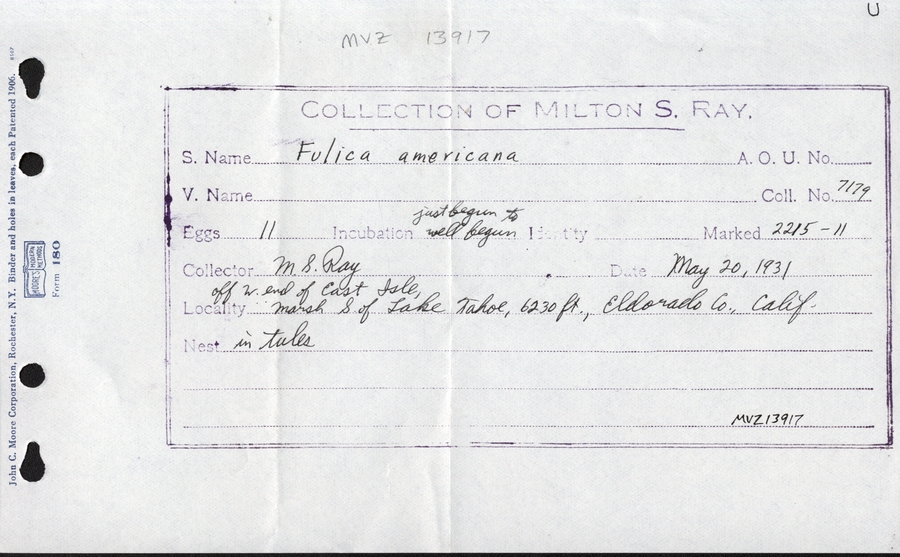 U
MVZ 13917
COLLECTION OF MILTON S. RAY.
S. Name Fulica americana A. O. U. No.
V. Name Coll. No. 7179
just begun to
Eggs 11 Incubation well begun Identity Marked 2215-11
Collector M. S. Ray Date May 20, 1931
off w. end of East Isle,
Locality marsh S. of Lake Tahoe, 6230 ft., Eldorado Co., Calif.
Nest in tules
MVZ13917
John C. Moore Corporation, Rochester, N.Y. Binder and holes in leaves, each Patented 1906.
MOORE'S MODERN METHODS
Form 180